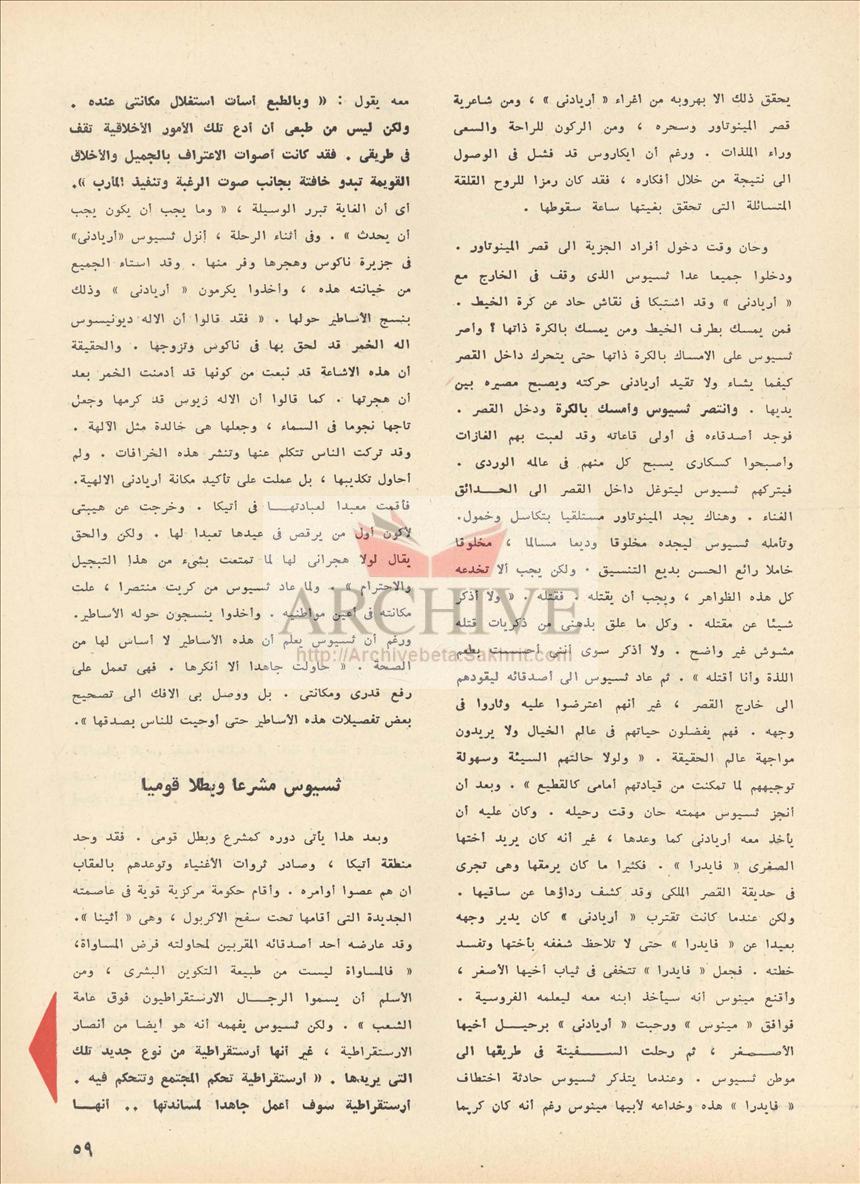 يحقق ذلك الا بهروبه من اغراء « أريادنى » ، ومن شاعرية
قصر المينوتاور وسحره ، ومن الركون للراحة والسعى
وراء الملذات . ورغم أن ايكاروس قد فشل فى الوصول
الى نتيجة من خلال أفكاره ، فقد كان رمزا للروح القلقة
المتسائلة التى تحقق بغيتها ساعة سقوطها .
وحان وقت دخول أفراد الجزية الى قصر المينوتاور .
ودخلوا جميعا عدا ثسيوس الذى وقف فى الخارج مع
« أريادنى » وقد اشتبكا فى نقاش حاد عن كرة الخيط .
فمن يمسك بطرف الخيط ومن يمسك بالكرة ذاتها ؟ وأصر
ثسيوس على الامساك بالكرة ذاتها حتى يتحرك داخل القصر
كيفما يشاء ولا تقيد أريادنى حركته ويصبح مصيره بين
يديها . وانتصر ثسيوس وأمسك بالكرة ودخل القصر .
فوجد أصدقاءه فى أولى قاعاته وقد لعبت بهم الغازات
وأصبحوا كسكارى يسبح كل منهم فى عالمه الوردى .
فيتركهم ثسيوس ليتوغل داخل القصر الى الحــدائق
الغناء . وهناك يجد المينوتاور مستلقيا بتكاسل وخمول.
وتأمله ثسيوس ليجده مخلوقا وديعا مسالما ، مخلوقا
خاملا رائع الحسن بديع التنسيق . ولكن يجب ألا تخدعه
كل هذه الظواهر ، ويجب أن يقتله . فقتله . « ولا أذكر
شيئا عن مقتله . وكل ما علق بذهنى من ذكريات قتله
مشوش غير واضح . ولا أذكر سوى أننى أحسست بطعم
اللذة وأنا أقتله » . ثم عاد ثسيوس الى أصدقائه ليقودهم
الى خارج القصر ، غير أنهم اعترضوا عليه وثاروا فى
وجهه . فهم يفضلون حياتهم فى عالم الخيال ولا يريدون
مواجهة عالم الحقيقة . « ولولا حالتهم السيئة وسهولة
توجيههم لما تمكنت من قيادتهم أمامى كالقطيع » . وبعد أن
أنجز ثسيوس مهمته حان وقت رحيله . وكان عليه أن
يأخذ معه أريادنى كما وعدها ، غير أنه كان يريد أختها
الصغرى « فايدرا » . فكثيرا ما كان يرمقها وهى تجرى
فى حديقة القصر الملكى وقد كشف رداؤها عن ساقيها .
ولكن عندما كانت تقترب « أريادنى » كان يدير وجهه
بعيدا عن « فايدرا » حتى لا تلاحظ شغفه بأختها وتفسد
خطته . فجعل « فايدرا » تتخفى فى ثياب أخيها الأصغر ،
وأقنع مينوس أنه سيأخذ ابنه معه ليعلمه الفروسية .
فوافق « مينوس » ورحبت « أريادنى » برحيــل أخيها
الأصــغر ، ثم رحلت الســفينة فى طريقها الى
موطن ثسيوس . وعندما يتذكر ثسيوس حادثة اختطاف
« فايدرا » هذه وخداعه لأبيها مينوس رغم أنه كان كريما
معه يقول : « وبالطبع أسأت استغلال مكانتى عنده .
ولكن ليس من طبعى أن أدع تلك الأمور الأخلاقية تقف
فى طريقى . فقد كانت أصوات الاعتراف بالجميل والأخلاق
القويمة تبدو خافتة بجانب صوت الرغبة وتنفيذ المآرب ».
أى أن الغاية تبرر الوسيلة ، « وما يجب أن يكون يجب
أن يحدث » . وفى أثناء الرحلة ، أنزل ثسيوس «أريادنى»
فى جزيرة ناكوس وهجرها وفر منها . وقد استاء الجميع
من خيانته هذه ، وأخذوا يكرمون « أريادنى » وذلك
بنسج الأساطير حولها . « فقد قالوا أن الاله ديونيسوس
اله الخمر قد لحق بها فى ناكوس وتزوجها . والحقيقة
أن هذه الاشاعة قد نبعت من كونها قد أدمنت الخمر بعد
أن هجرتها . كما قالوا أن الاله زيوس قد كرمها وجعل
تاجها نجوما فى السماء ، وجعلها هى خالدة مثل الآلهة .
وقد تركت الناس تتكلم عنها وتنشر هذه الخرافات . ولم
أحاول تكذيبها ، بل عملت على تأكيد مكانة أريادنى الالهية.
فأقمت معبدا لعبادتهــا فى أتيكا . وخرجت عن هيبتى
لأكون أول من يرقص فى عيدها تعبدا لها . ولكن والحق
يقال لولا هجرانى لها لما تمتعت بشىء من هذا التبجيل
والاحترام » . ولما عاد ثسيوس من كريت منتصرا ، علت
مكانته فى أعين مواطنيه . وأخذوا ينسجون حوله الأساطير.
ورغم أن ثسيوس يعلم أن هذه الأساطير لا أساس لها من
الصحة . « حاولت جاهدا ألا أنكرها . فهى تعمل على
رفع قدرى ومكانتى . بل ووصل بى الافك الى تصحيح
بعض تفصيلات هذه الأساطير حتى أوحيت للناس بصدقها ».
ثسيوس مشرعا وبطلا قوميا
وبعد هذا يأتى دوره كمشرع وبطل قومى . فقد وحد
منطقة أتيكا ، وصادر ثروات الأغنياء وتوعدهم بالعقاب
ان هم عصوا أوامره . وأقام حكومة مركزية قوية فى عاصمته
الجديدة التى أقامها تحت سفح الاكربول ، وهى « أثينا ».
وقد عارضه أحد أصدقائه المقربين لمحاولته فرض المساواة،
« فالمساواة ليست من طبيعة التكوين البشرى ، ومن
الأسلم أن يسموا الرجــال الارستقراطيون فوق عامة
الشعب » . ولكن ثسيوس يفهمه أنه هو أيضا من أنصار
الارستقراطية ، غير أنها أرستقراطية من نوع جديد تلك
التى يريدها . « أرستقراطية تحكم المجتمع وتتحكم فيه .
أرستقراطية سوف أعمل جاهدا لمساندتها .. أنهــا
٥٩
ARCHIVE
http://Archivebeta.Sakhrit.com